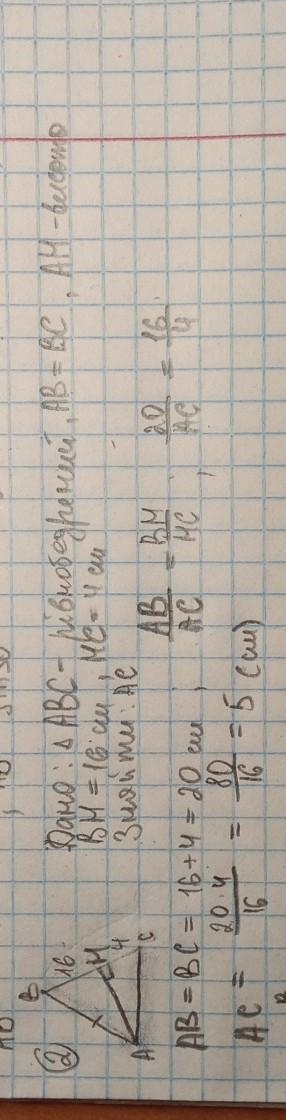 ② Дано: △ ABC - рівнобедрений, AB = BC, AM - висота
BM = 16 см, MC = 4 см
Знайти: AC
B
16
M
4
A
C
AB = BC = 16 + 4 = 20 см, AB/AC = BM/MC, 20/AC = 16/4
AC = 20·4/16 = 80/16 = 5 (см)